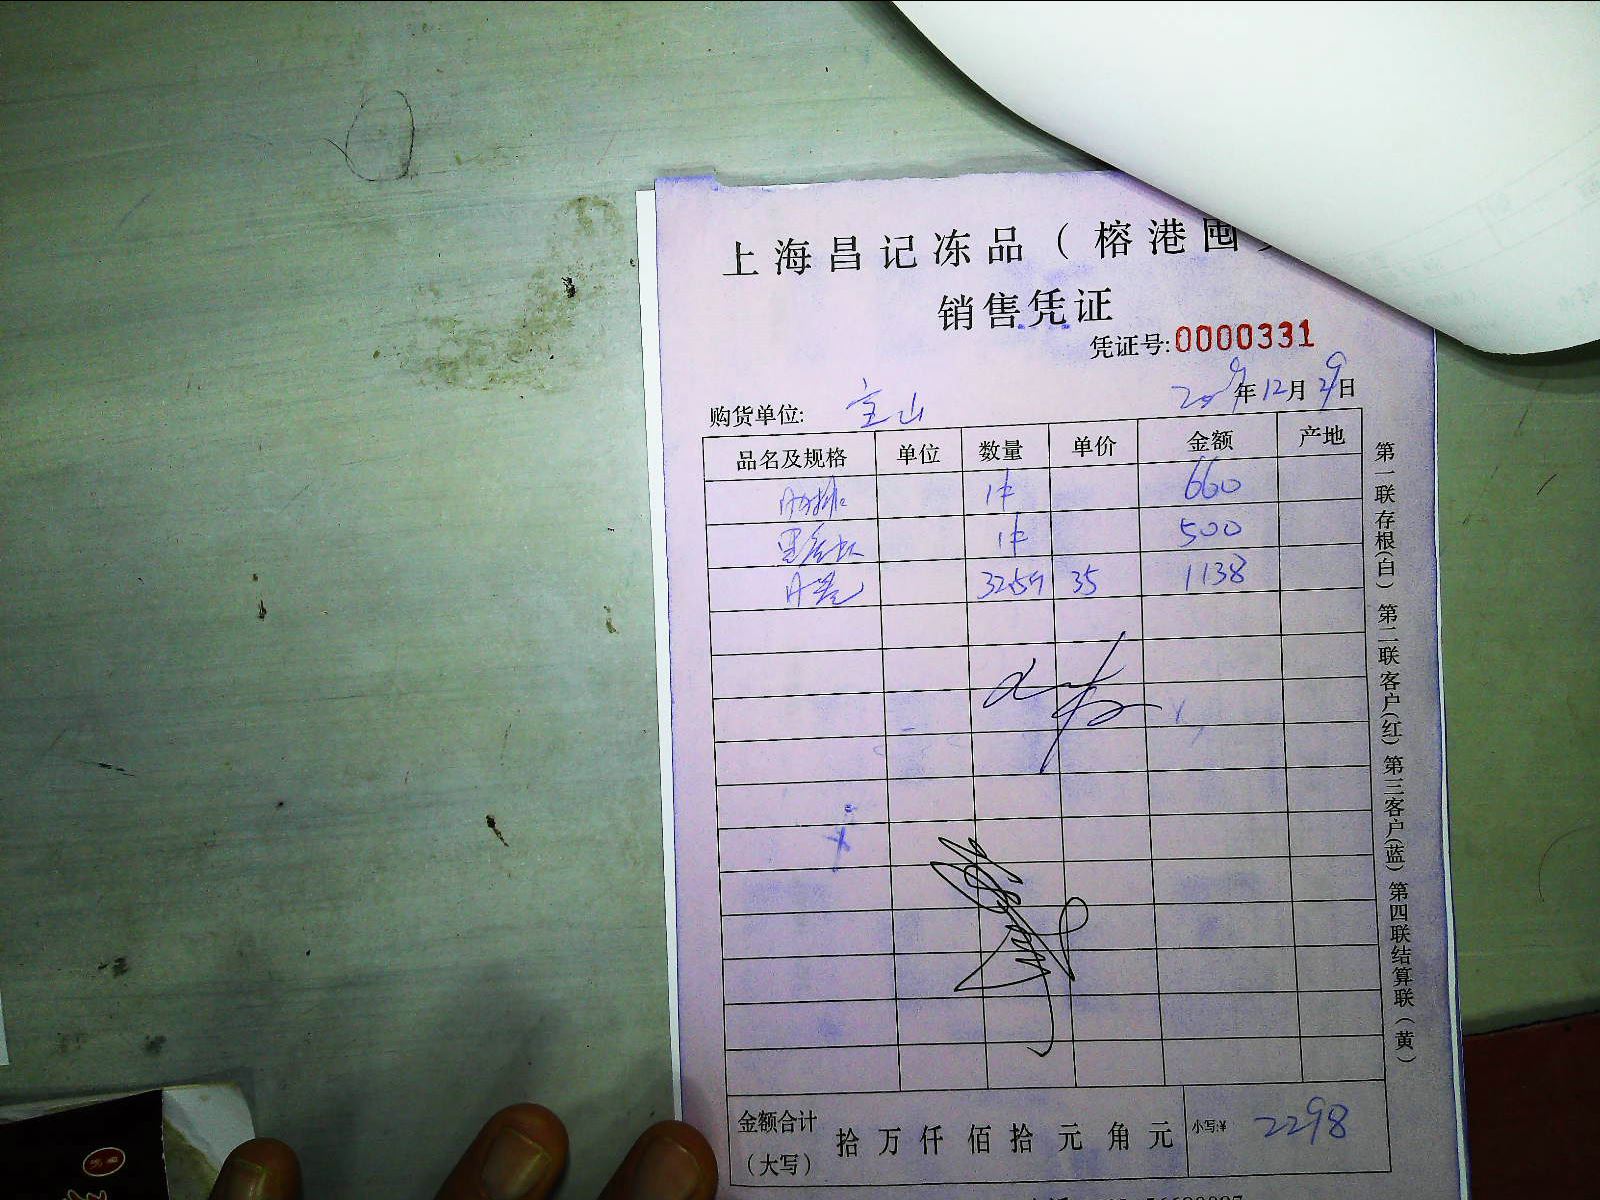 上海昌记冻品（榕港囤
销售凭证
凭证号:0000331
购货单位: 宝山 2009年12月29日
品名及规格 单位 数量 单价 金额 产地
1件 660
1件 500
35 1138
金额合计（大写） 拾 万 仟 佰 拾 元 角 元 小写:¥ 2298
第一联存根(白) 第二联客户(红) 第三客户(蓝) 第四联结算联(黄)